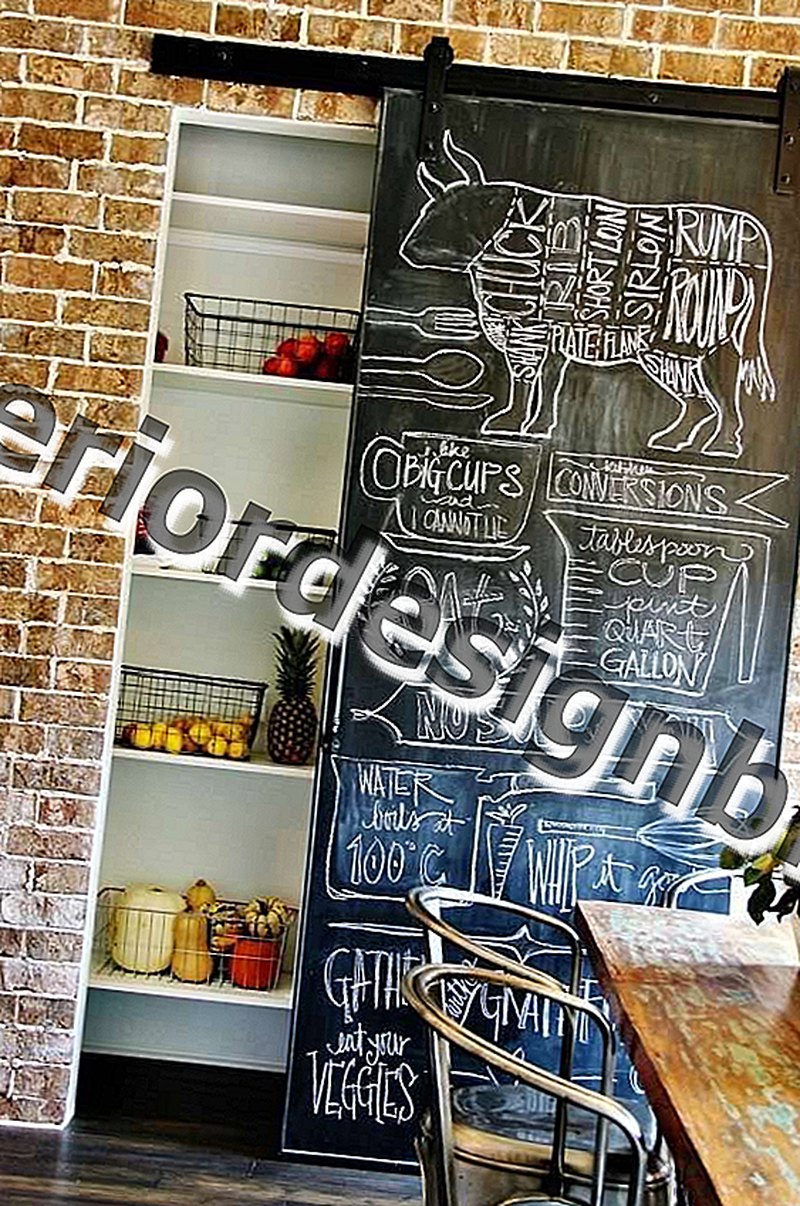 CHUCK
RIB
SHORT LOIN
SIRLOIN
RUMP
ROUND
SHANK
PLATE
FLANK
SHANK
i like
BIG CUPS
and
I CANNOT LIE
kitchen
CONVERSIONS
tablespoon
CUP
pint
QUART
GALLON
eriordesignb
WATER
boils at
100°C
WHIP it good
GATHE
with
eat your
VEGGIES